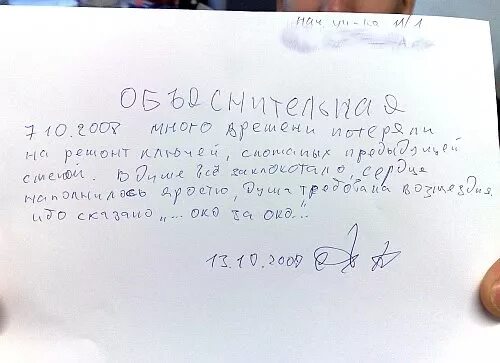 нач уч-ка 11/1
ОБЪЯСНИТЕЛЬНАЯ
7.10.2008 много времени потеряли
на ремонт ключей, сломаных предыдущей
сменой. В душе всё заклокотало, сердце
наполнилось яростю, душа требовала возмездия.
ибо сказано „... око за око..."
13.10.2008